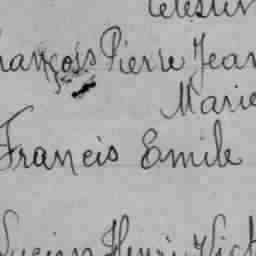 Célestin
François Pierre Jean
Marie
Francis Emile
Lucien Henri Vict